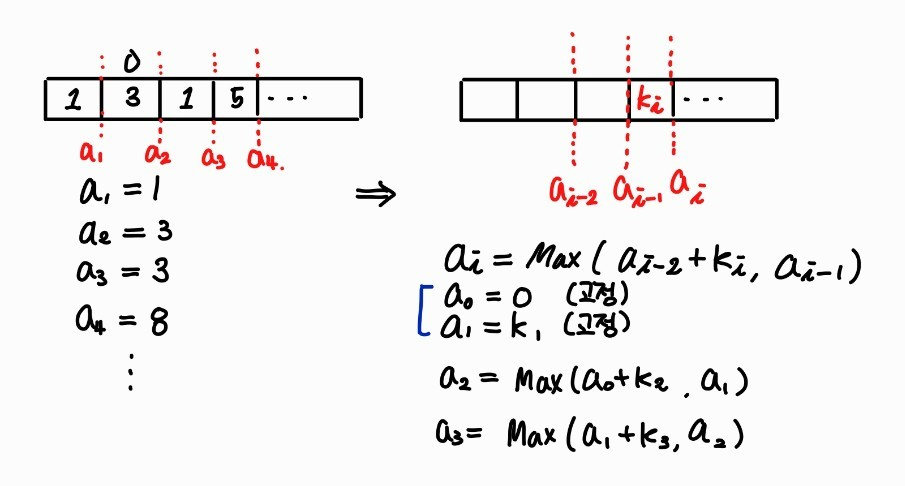 0
1 3 1 5 ...
a₁ a₂ a₃ a₄.
a₁ = 1
a₂ = 3
a₃ = 3
a₄ = 8
⋮
⇒
kᵢ ...
aᵢ₋₂ aᵢ₋₁ aᵢ
aᵢ = Max( aᵢ₋₂+kᵢ, aᵢ₋₁)
a₀ = 0 (고정)
a₁ = k₁ (고정)
a₂ = Max(a₀+k₂ , a₁)
a₃= Max(a₁+k₃, a₂)